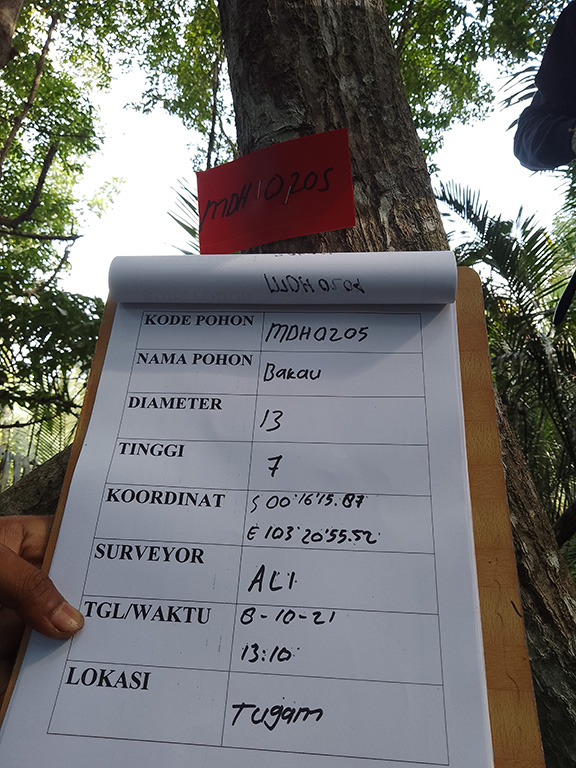 MDH10205
KODE POHON MDH0205
NAMA POHON Bakau
DIAMETER 13
TINGGI 7
KOORDINAT S 00°16'15.87
E 103°20'55.52
SURVEYOR ALI
TGL/WAKTU 8-10-21
13:10
LOKASI Tugam